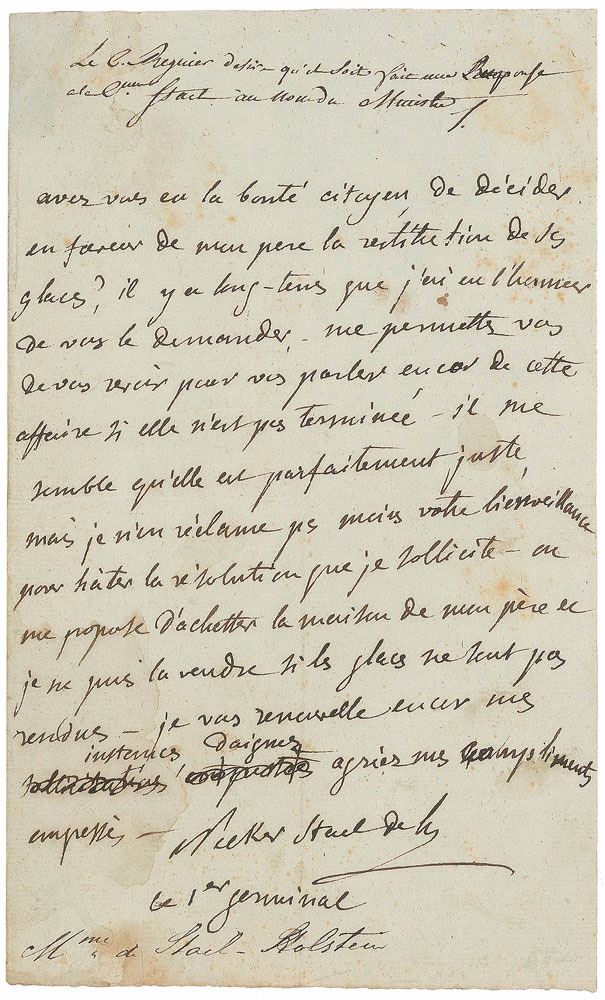 Le C. Regnier desire qu'il soit fait une Réponse
a la C.enne Stael au nom du Ministre
avez vous eu la bonté citoyen, de décider
en faveur de mon pere la restitution de ses
glaces? il y a long-tems que j'ai eu l'honneur
de vous le demander, - me permettez vous
de vous revoir pour vous parler encor de cette
affaire si elle n'est pas terminée - il me
semble qu'elle est parfaitement juste,
mais je n'en réclame pas moins votre bienveillance
pour hâter la résolution que je sollicite - on
me propose d'achetter la maison de mon père et
je ne puis la vendre si les glaces ne sont pas
rendues - je vous renouvelle encor mes
instances daignez
agréer mes compliments
empressés -
Necker Stael de h
ce 1er germinal
Mme de Stael-Holstein